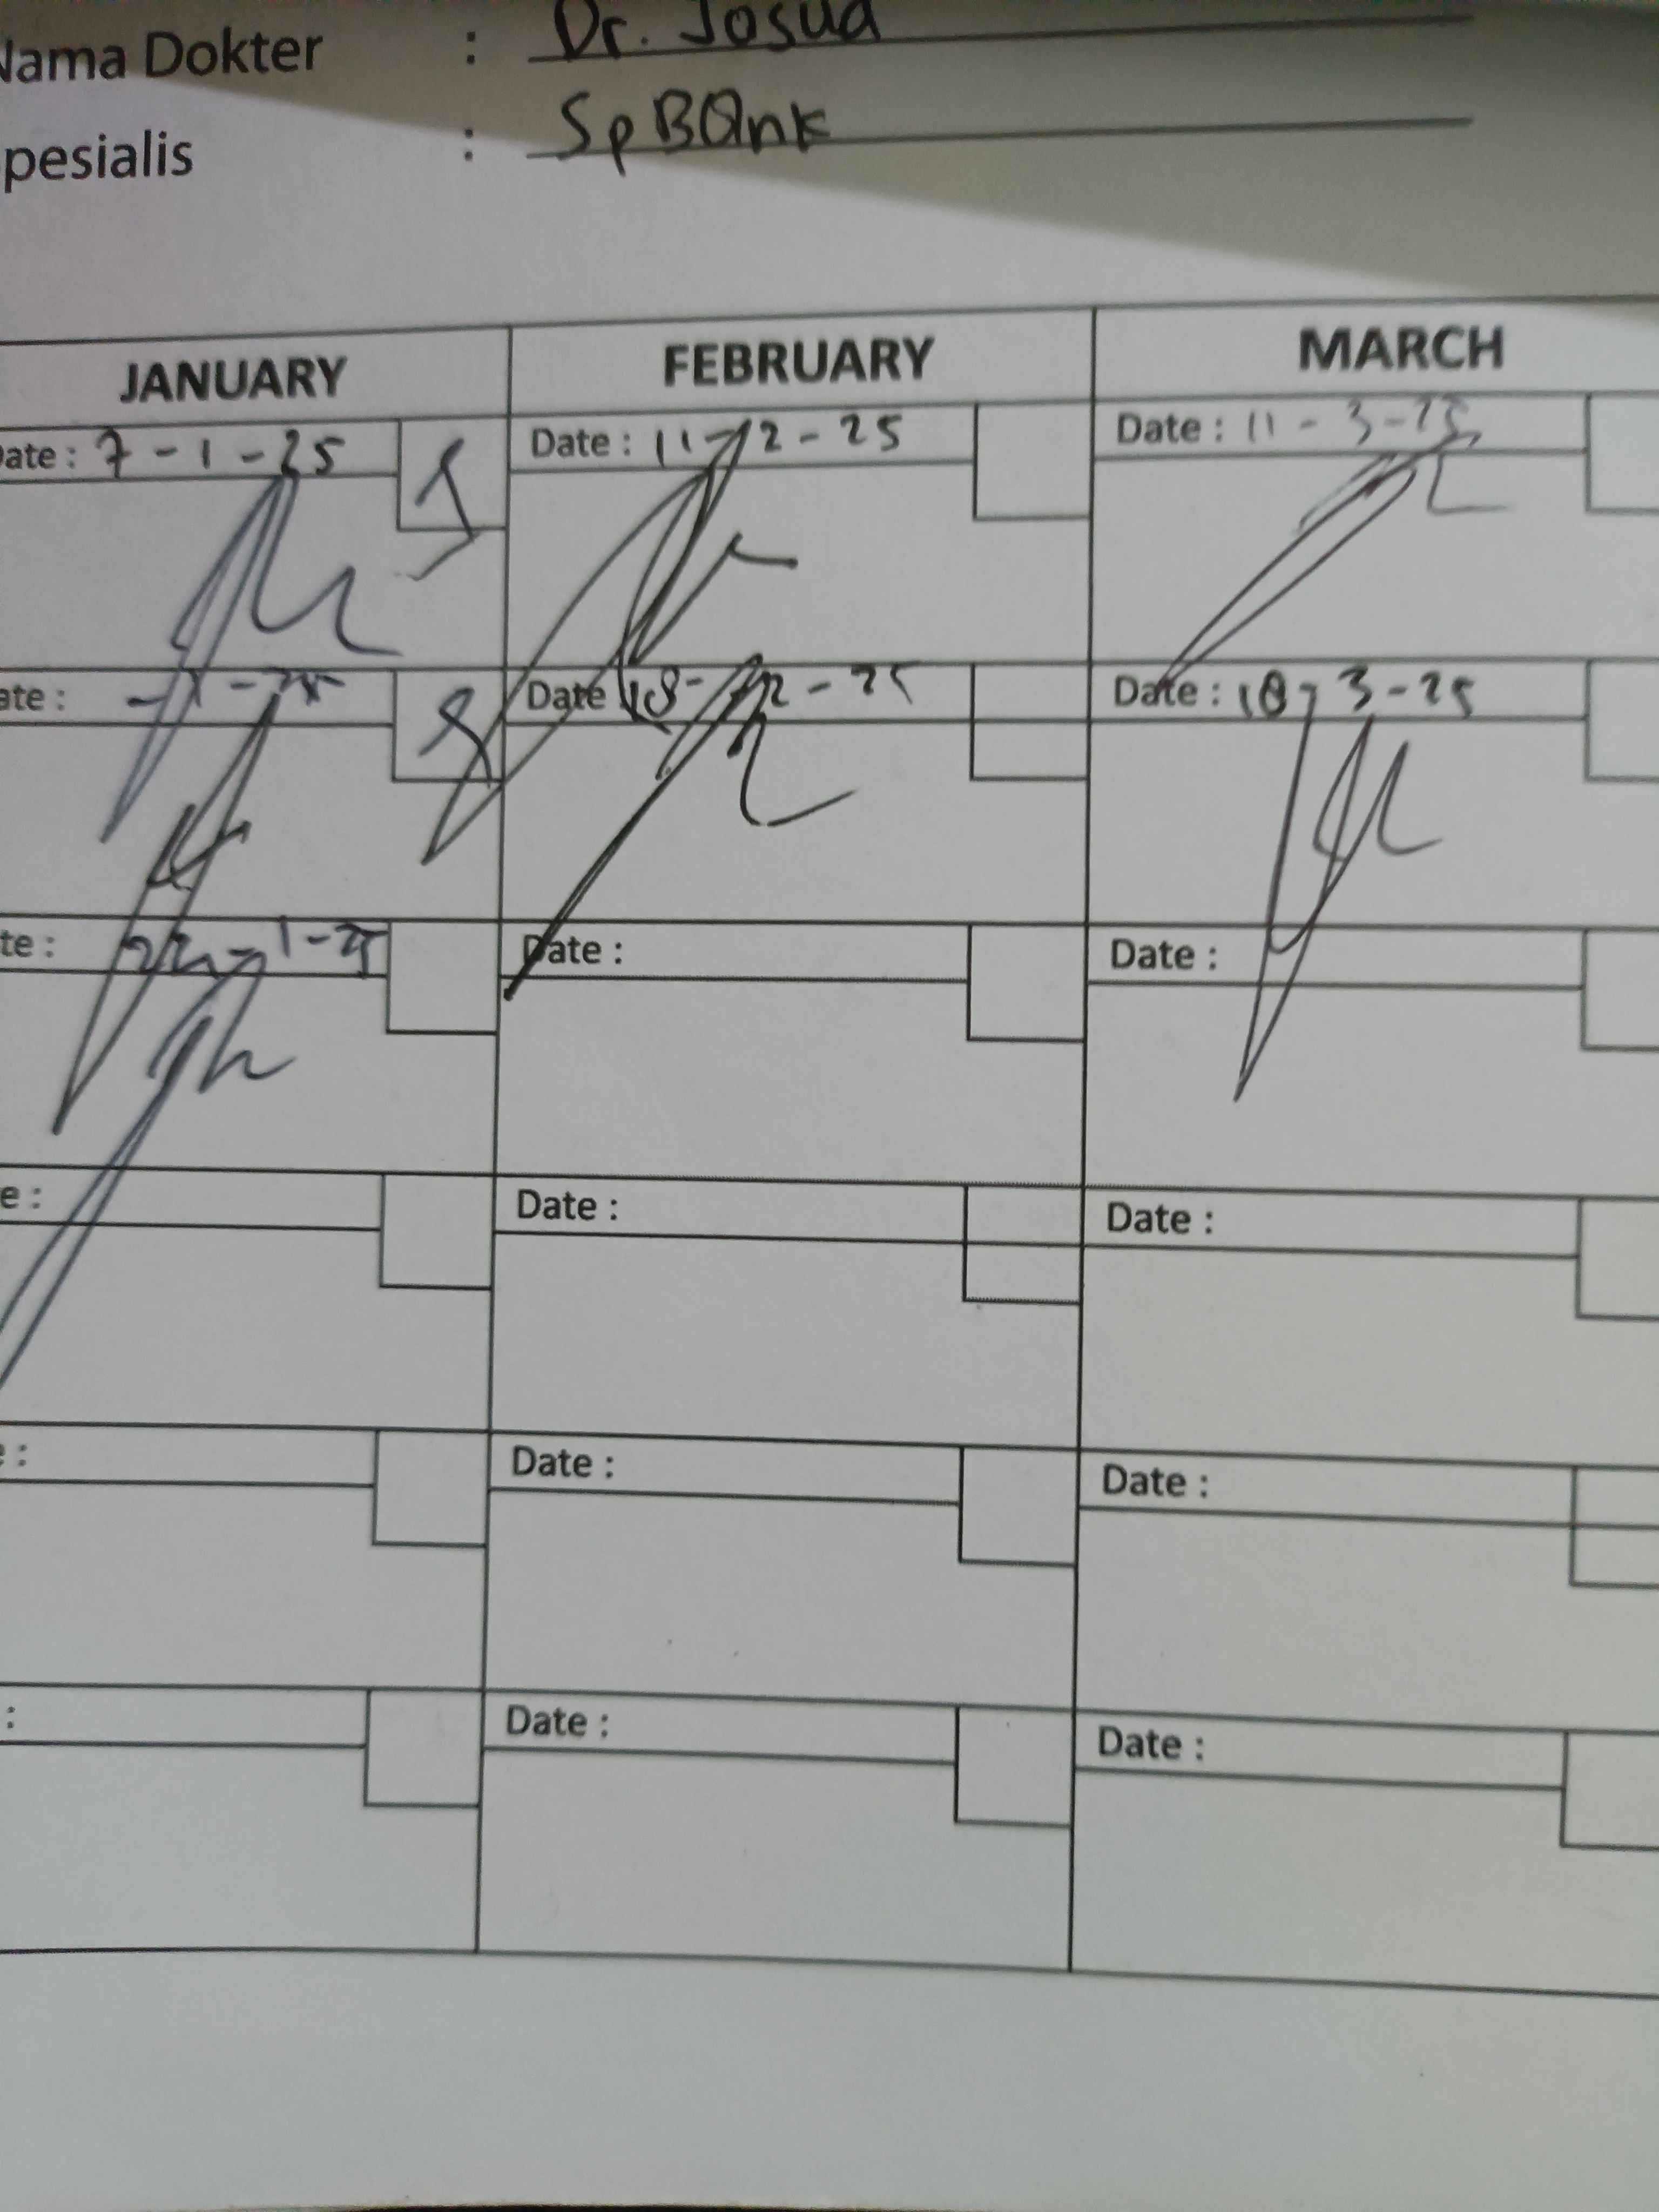 Nama Dokter : Dr. Josua
pesialis : SpBAnk
JANUARY FEBRUARY MARCH
ate : 7-1-25 Date : 11-2-25 Date : 11-3-25
ate : Date 18-2-25 Date : 18-3-25
te : 22-1-25 Date : Date :
e : Date : Date :
: Date : Date :
: Date : Date :